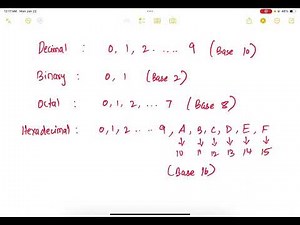 Decimal : 0, 1, 2 ..... 9 (Base 10)
Binary : 0, 1 (Base 2)
Octal : 0, 1, 2, ... 7 (Base 8)
Hexadecimal : 0, 1, 2 ..... 9, A, B, C, D, E, F
↓ ↓ ↓ ↓ ↓ ↓
10 11 12 13 14 15
(Base 16)